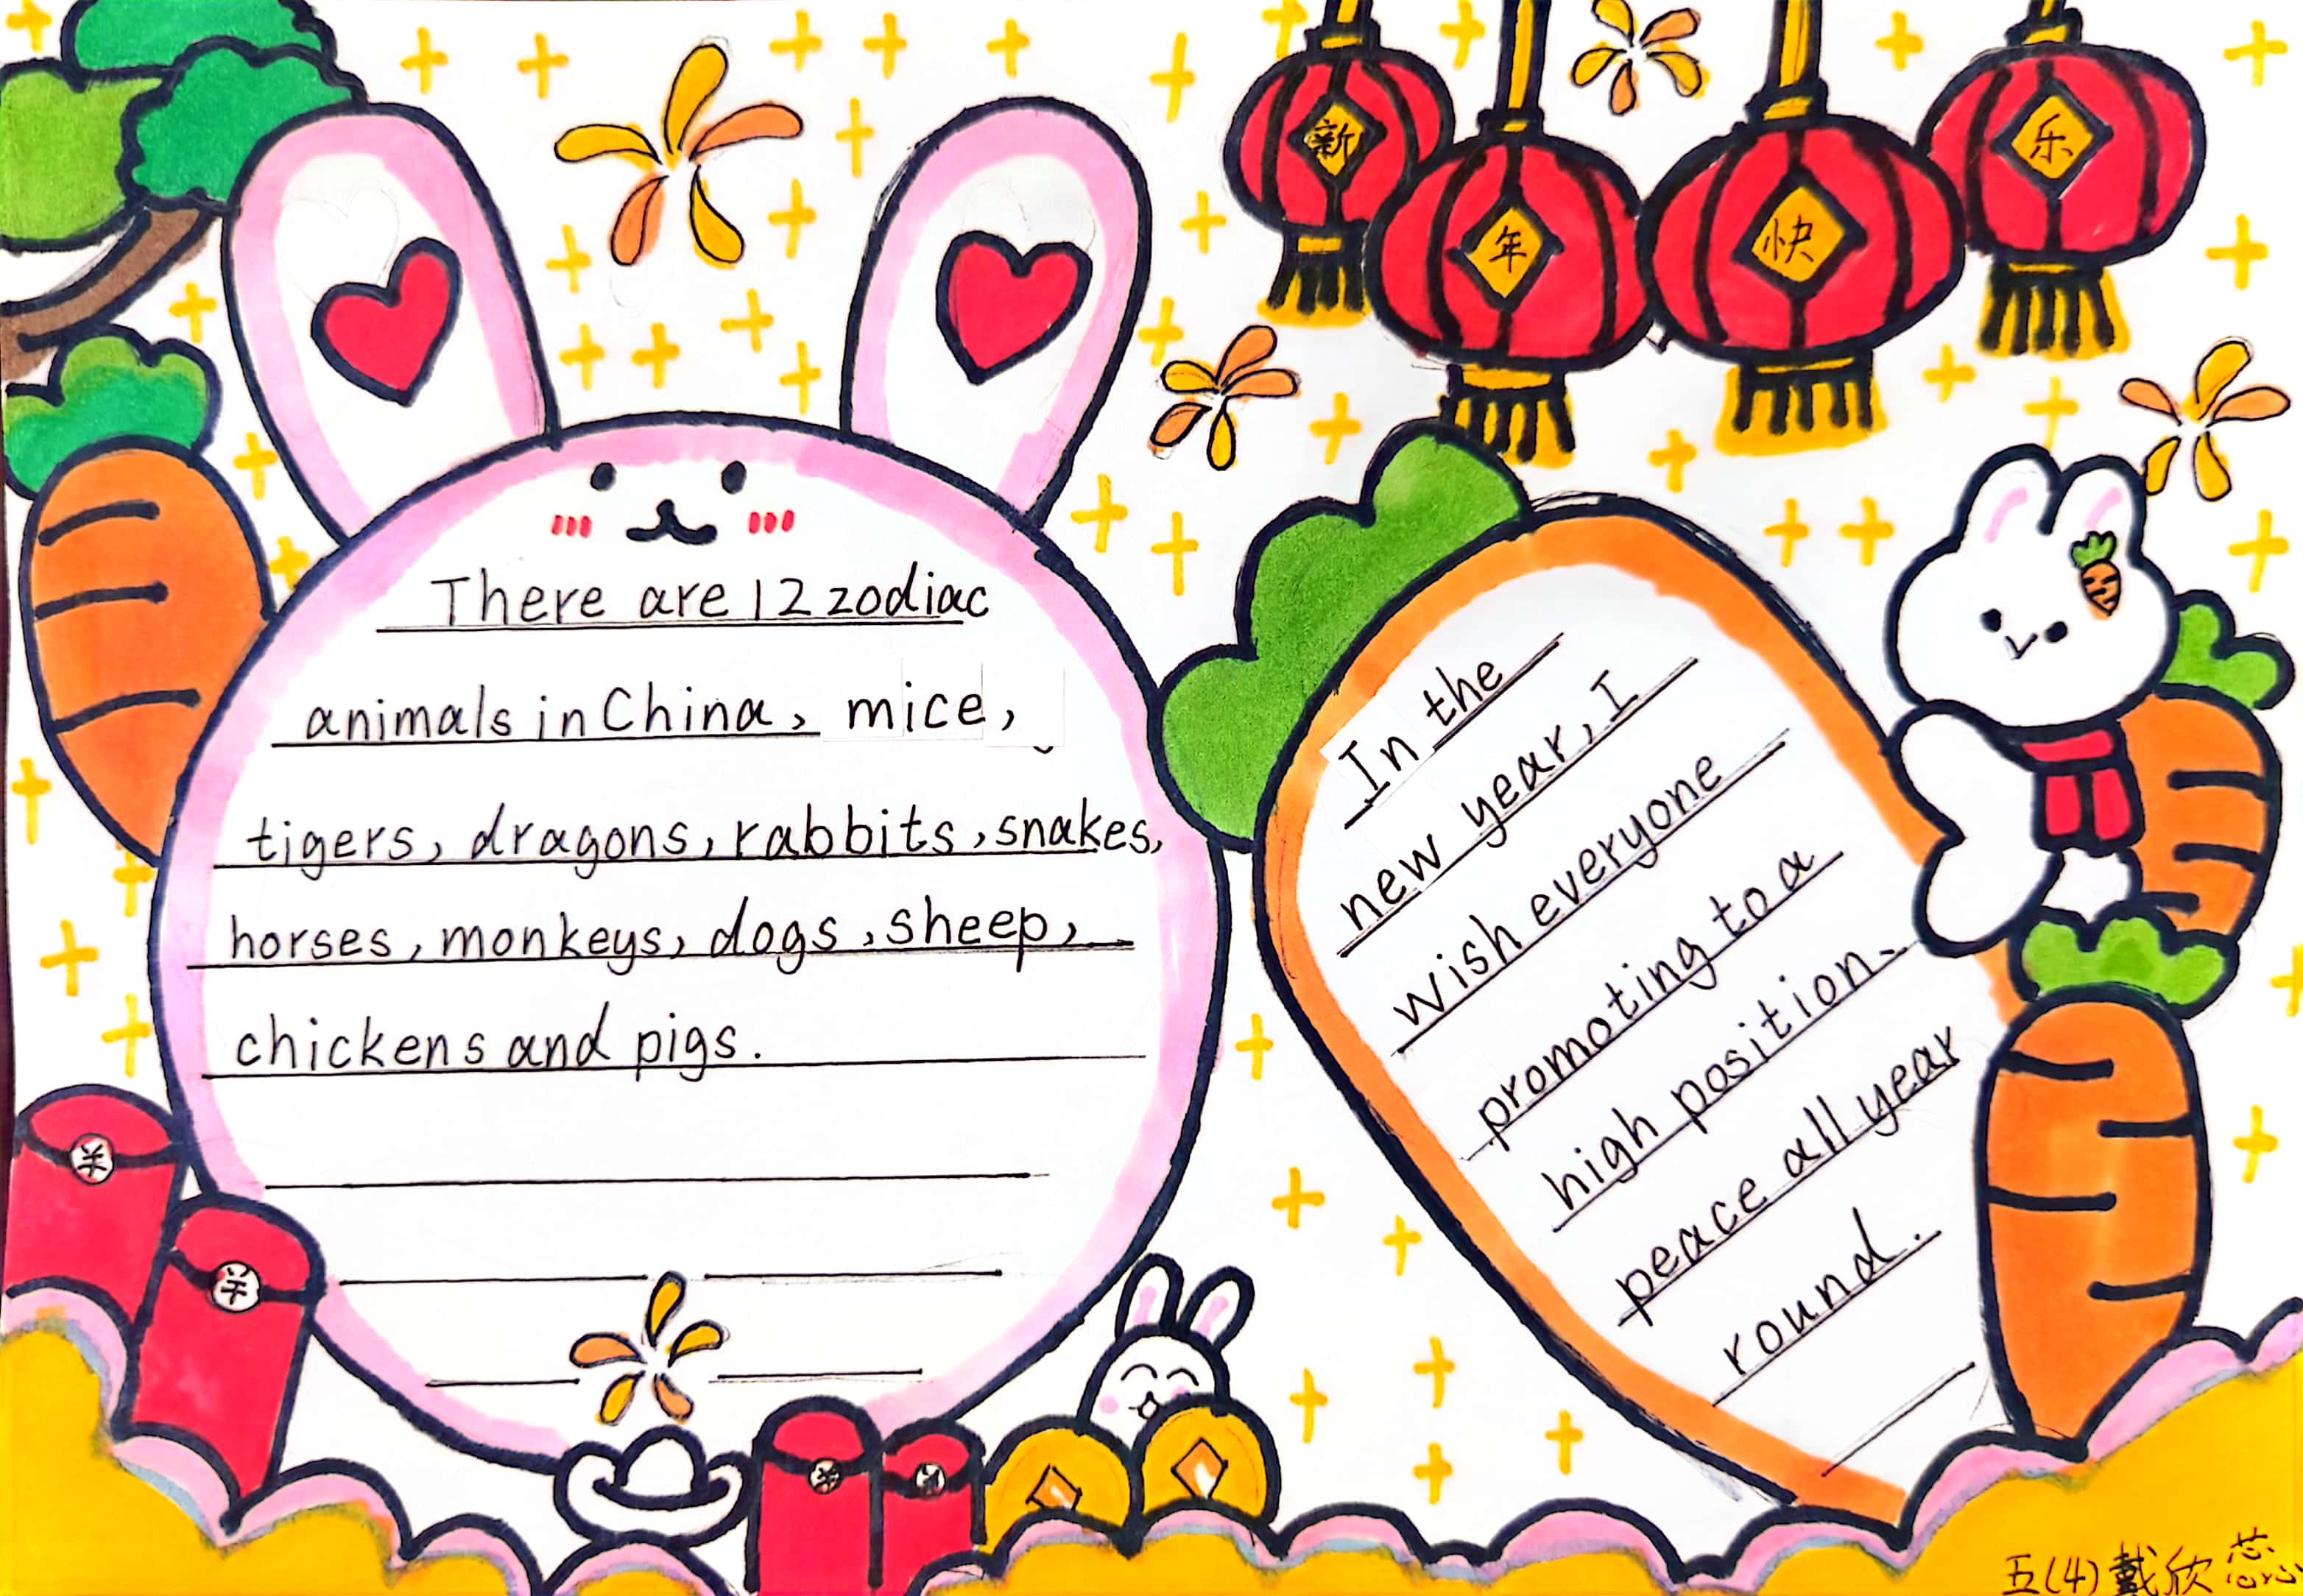 新
年
快
乐
There are 12 zodiac
animals in China, mice,
tigers, dragons, rabbits, snakes,
horses, monkeys, dogs, sheep,
chickens and pigs.
In the
new year, I
wish everyone
promoting to a
high position.
peace all year
round.
五(4)戴欣蕊